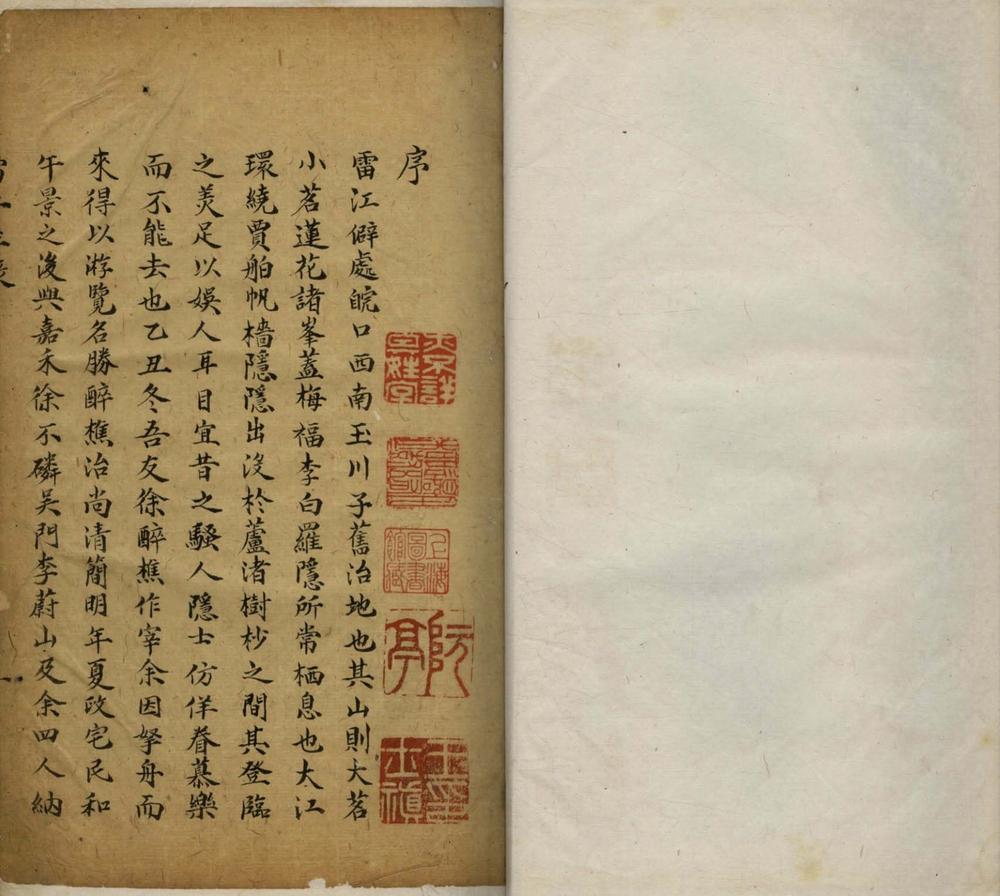 序
雷江僻處皖口西南玉川子舊治地也其山則大茗
小茗蓮花諸峯蓋梅福李白羅隱所常栖息也大江
環繞賈舶帆檣隱隱出沒於蘆渚樹杪之間其登臨
之羙足以娛人耳目宜昔之騷人隱士仿佯眷慕樂
而不能去也乙丑冬吾友徐醉樵作宰余因拏舟而
來得以游覽名勝醉樵治尚清簡明年夏政宅民和
午景之後與嘉禾徐不磷吳門李蔚山及余四人納
上海圖書館藏
阮亭